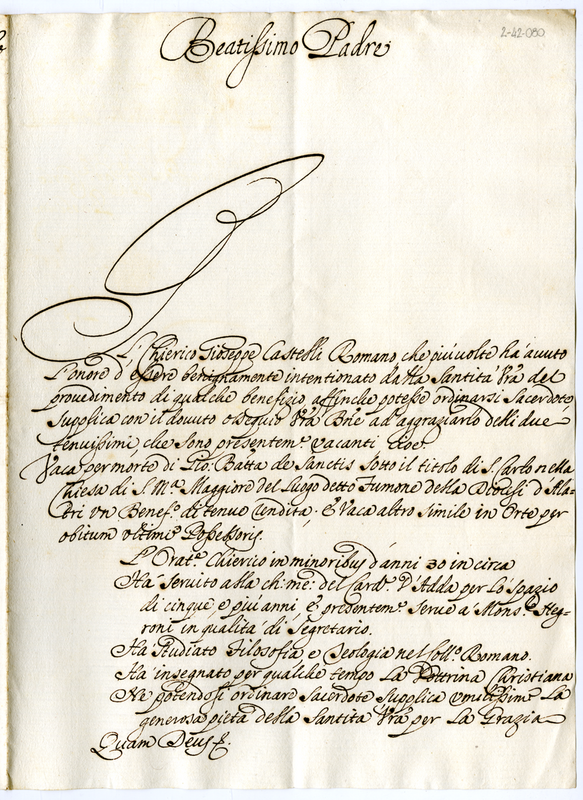 2-42-080
Beatissimo Padre
Il Chierico Gioseppe Castelli Romano, che più volte hà avuto
l'onore d'essere benignamente intentionato dalla Santità Vrâ del
provedimento di qualche benefizio affinche potesse ordinarsi Sacerdote
Supplica con il dovuto ossequio Vrâ Bne ad' aggraziarlo delli due
tenuissimi, che sono presentem.e vacanti cioe.
Vaca per morte di Gio: Batta de Sanctis sotto il titolo di S. Carlo nella
Chiesa di S. M.a Maggiore del Luogo detto Fumone della Diocesi d'Ala-
tri vn Benef.o di tenue rendita. E' Vaca altro simile in Orte per
obitum vltimi Possessoris.
L'Orat.e Chierico in minoribus d'anni 30 in circa
Hà servito alla ch: me: del Card. D'Adda per lo spazio
di cinque e più anni e' presentem.e serve a' Mons.r Neg-
roni in qualità di Segretario.
Hà studiato Filosofia e Teologia nel Coll.o Romano.
Hà insegnato per qualche tempo La Dottrina Christiana
Ne potendosi ordinare Sacerdote Supplica vmilissim.e La
generosa pietà della Santità Vrâ per La Grazia
Quam Deus &.